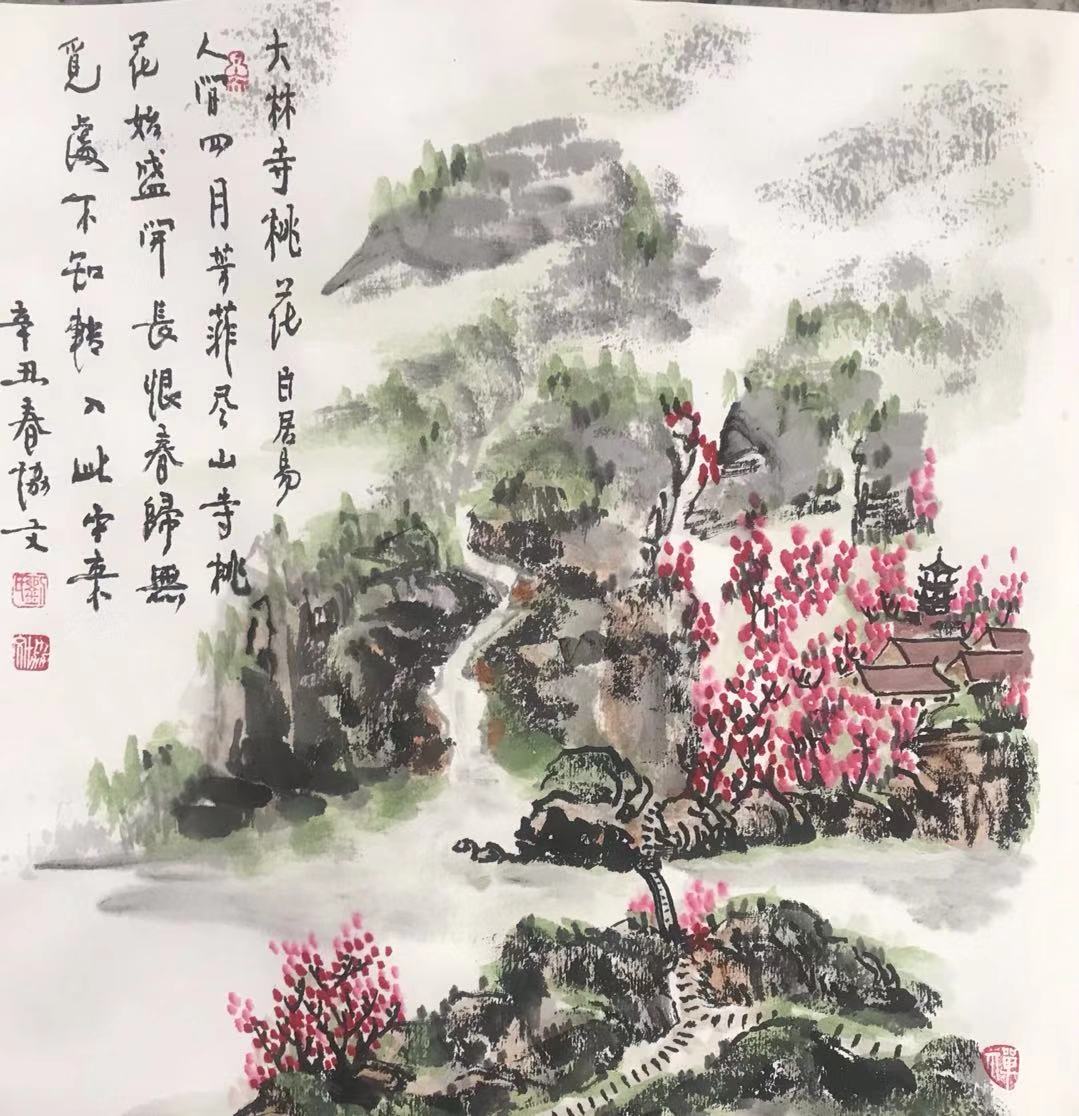 大林寺桃花 白居易
人間四月芳菲尽山寺桃
花始盛開長恨春歸無
覓處不知轉入此中来
辛丑春協文